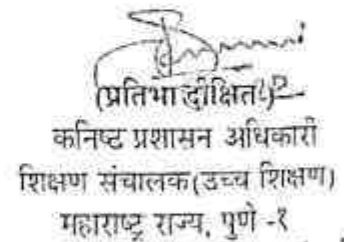 (प्रतिभा दीक्षित)
कनिष्ट प्रशासन अधिकारी
शिक्षण संचालक(उच्च शिक्षण)
महाराष्ट्र राज्य, पुणे -१